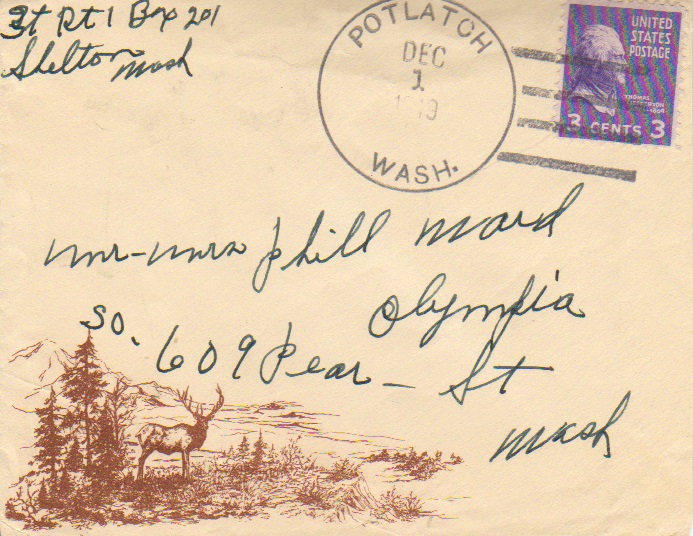 St Rt 1 Box 201
Shelton Wash
POTLATCH
DEC
1
WASH.
UNITED
STATES
POSTAGE
THOMAS
JEFFERSON
3 CENTS 3
Mr-Mrs Phill Ward
Olympia
So. 609 Pear - St
Wash